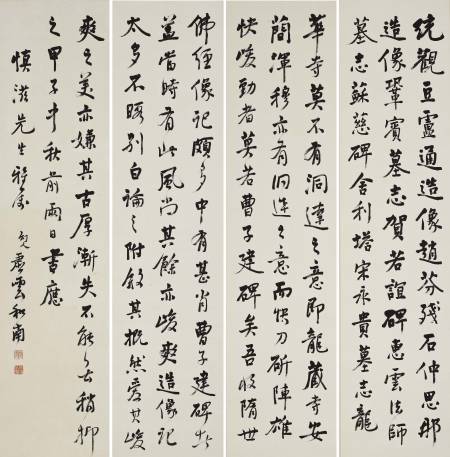 統觀豆盧通造像趙芬殘石仲思那
造像鞏賓墓志賀若誼碑惠雲法師
墓志蘇慈碑舍利塔宋永貴墓志龍
華寺莫不有洞達之意即龍藏寺安
簡渾穆亦有洞達之意而快刀斫陣雄
快峻勁者莫若曹子建碑矣吾收隋世
佛經像記頗多中有甚肖曹子建碑者
蓋當時有此風尚其餘亦峻爽造像記
太多不暇別白論之附敘其概然愛其峻
爽之美亦嫌其古厚漸失不能無稍抑
之甲子中秋前兩日書應
慎滋先生雅屬 虛雲和南